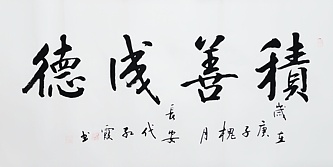 積善成德
歲在
庚子槐月
長安
代红霞書